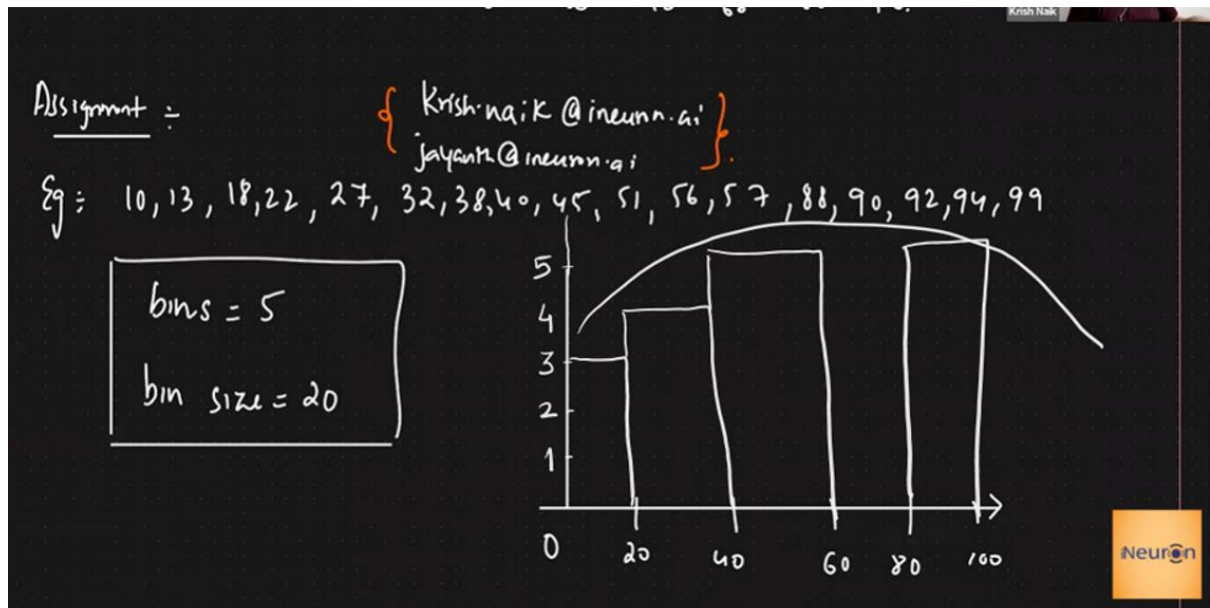 Krish Naik
Assignment :-
Krish.naik@ineuron.ai
jayanth@ineuron.ai
Eg:- 10, 13, 18, 22, 27, 32, 38, 40, 45, 51, 56, 57, 88, 90, 92, 94, 99
bins = 5
bin size = 20
5
4
3
2
1
0 20 40 60 80 100
iNeuron